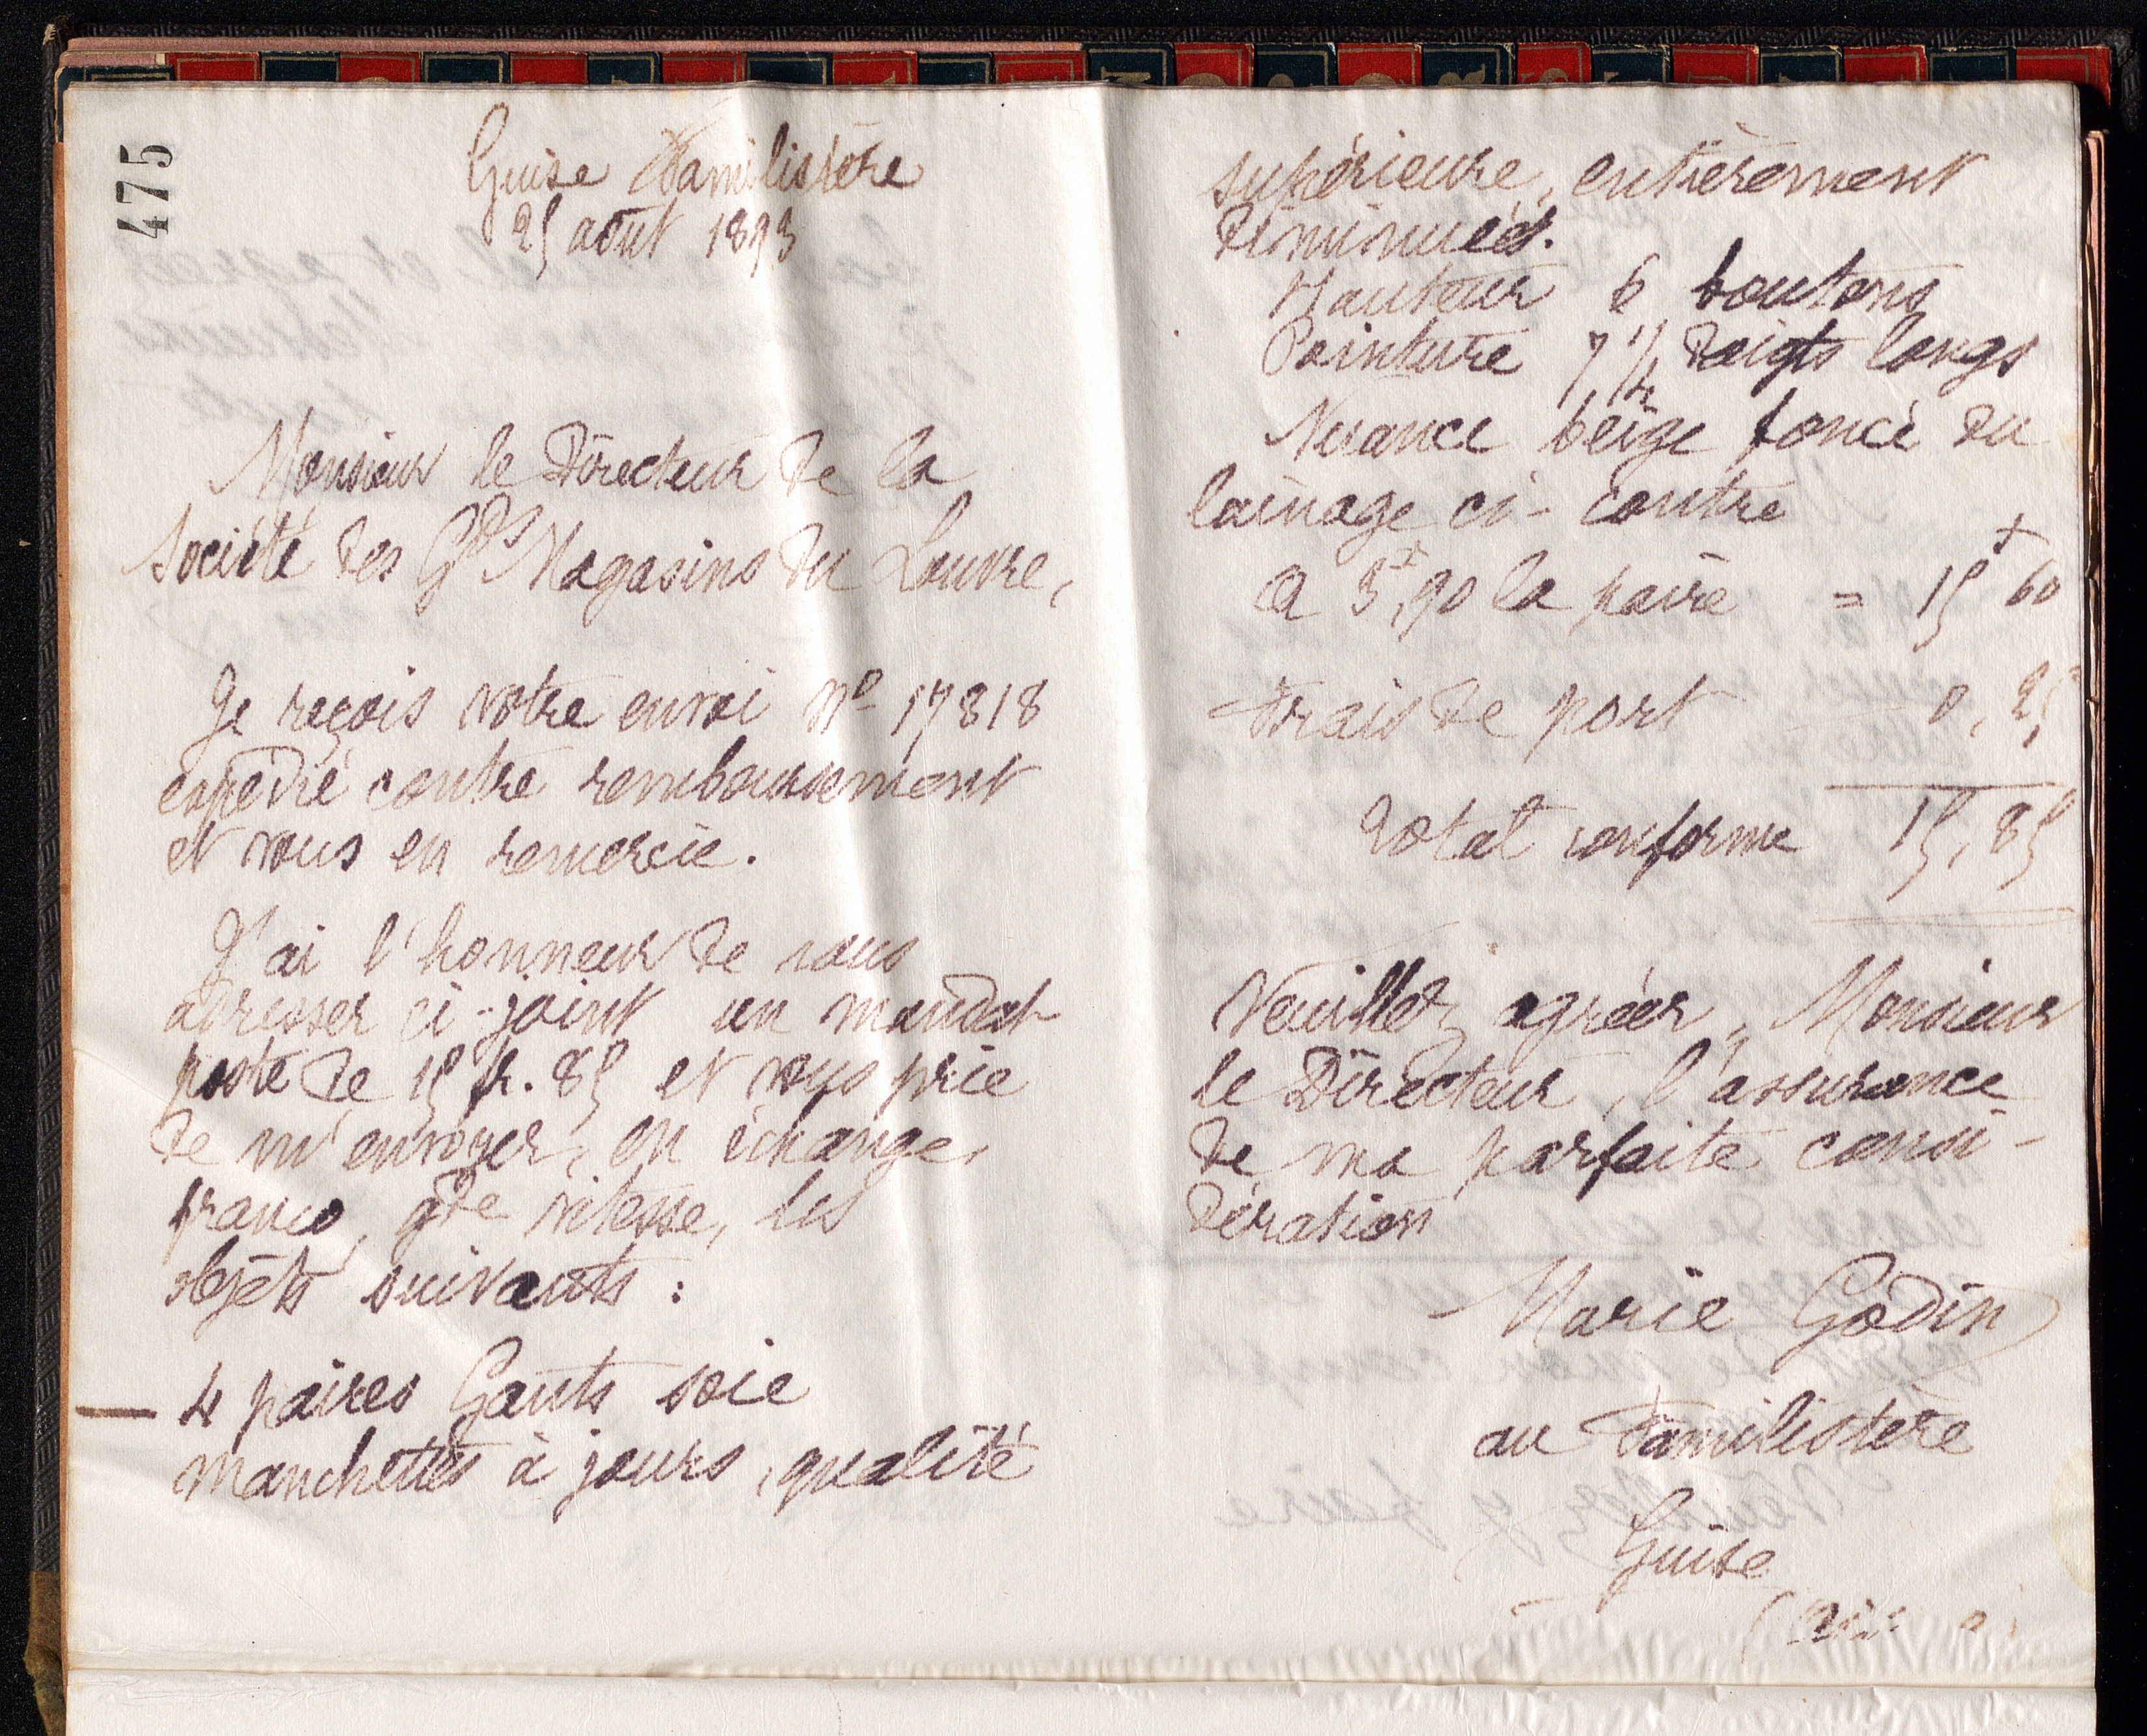 475
Guise Familistère
25 août 1893
Monsieur le Directeur de la
Société des Gds Magasins du Louvre,
Je reçois votre envoi No 17818
expédié contre remboursement
et vous en remercie.
J'ai l'honneur de vous
adresser ci-joint un mandat
poste de 15 fr. 85 et vous prie
de m'envoyer, en échange,
franco, gde vitesse, les
objets suivants :
— 4 paires Gants soie
manchettes à jours, qualité
supérieure, entièrement
diminués.
Hauteur 6 boutons
Pointure 7 1/4 doigts longs
Nuance beige foncé du
lainage ci-contre
a 3f,90 la paire = 15f 60
Frais de port 0, 25
Total conforme 15, 85
Veuillez agréer, Monsieur
le Directeur, l'assurance
de ma parfaite consi-
dération
Marie Godin
au Familistère
Guise